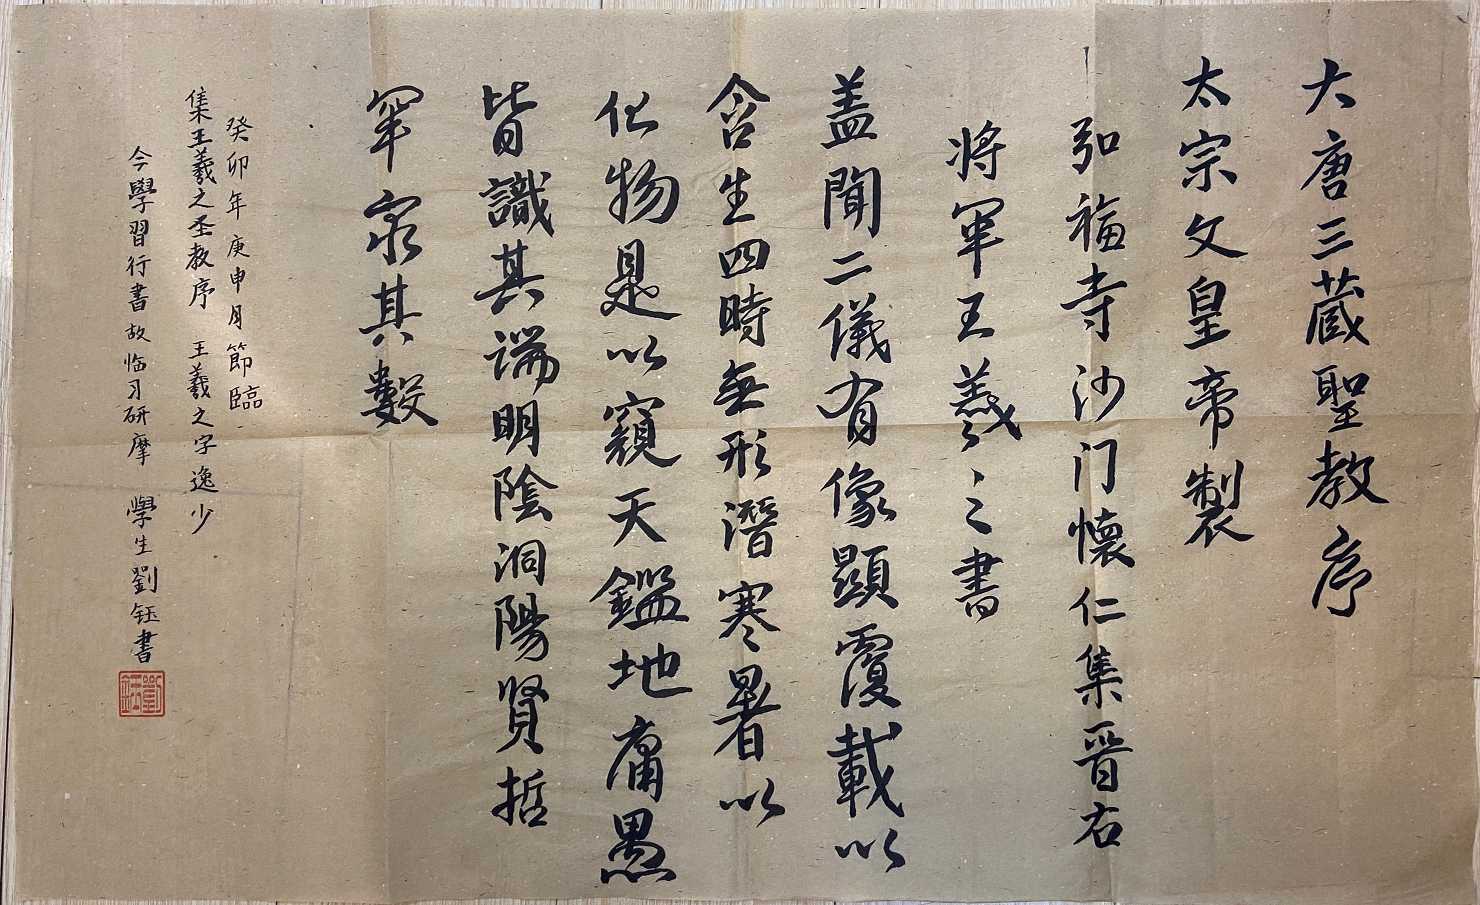 大唐三蔵聖教序
太宗文皇帝製
弘福寺沙门懐仁集晉右
将軍王羲之書
盖聞二儀有像顯覆載以
含生四時無形潛寒暑以
化物是以窺天鑑地庸愚
皆識其端明陰洞陽賢哲
罕窮其數
癸卯年庚申月節臨
集王羲之圣教序 王羲之字逸少
今學習行書故临习研摩 學生劉钰書
劉钰